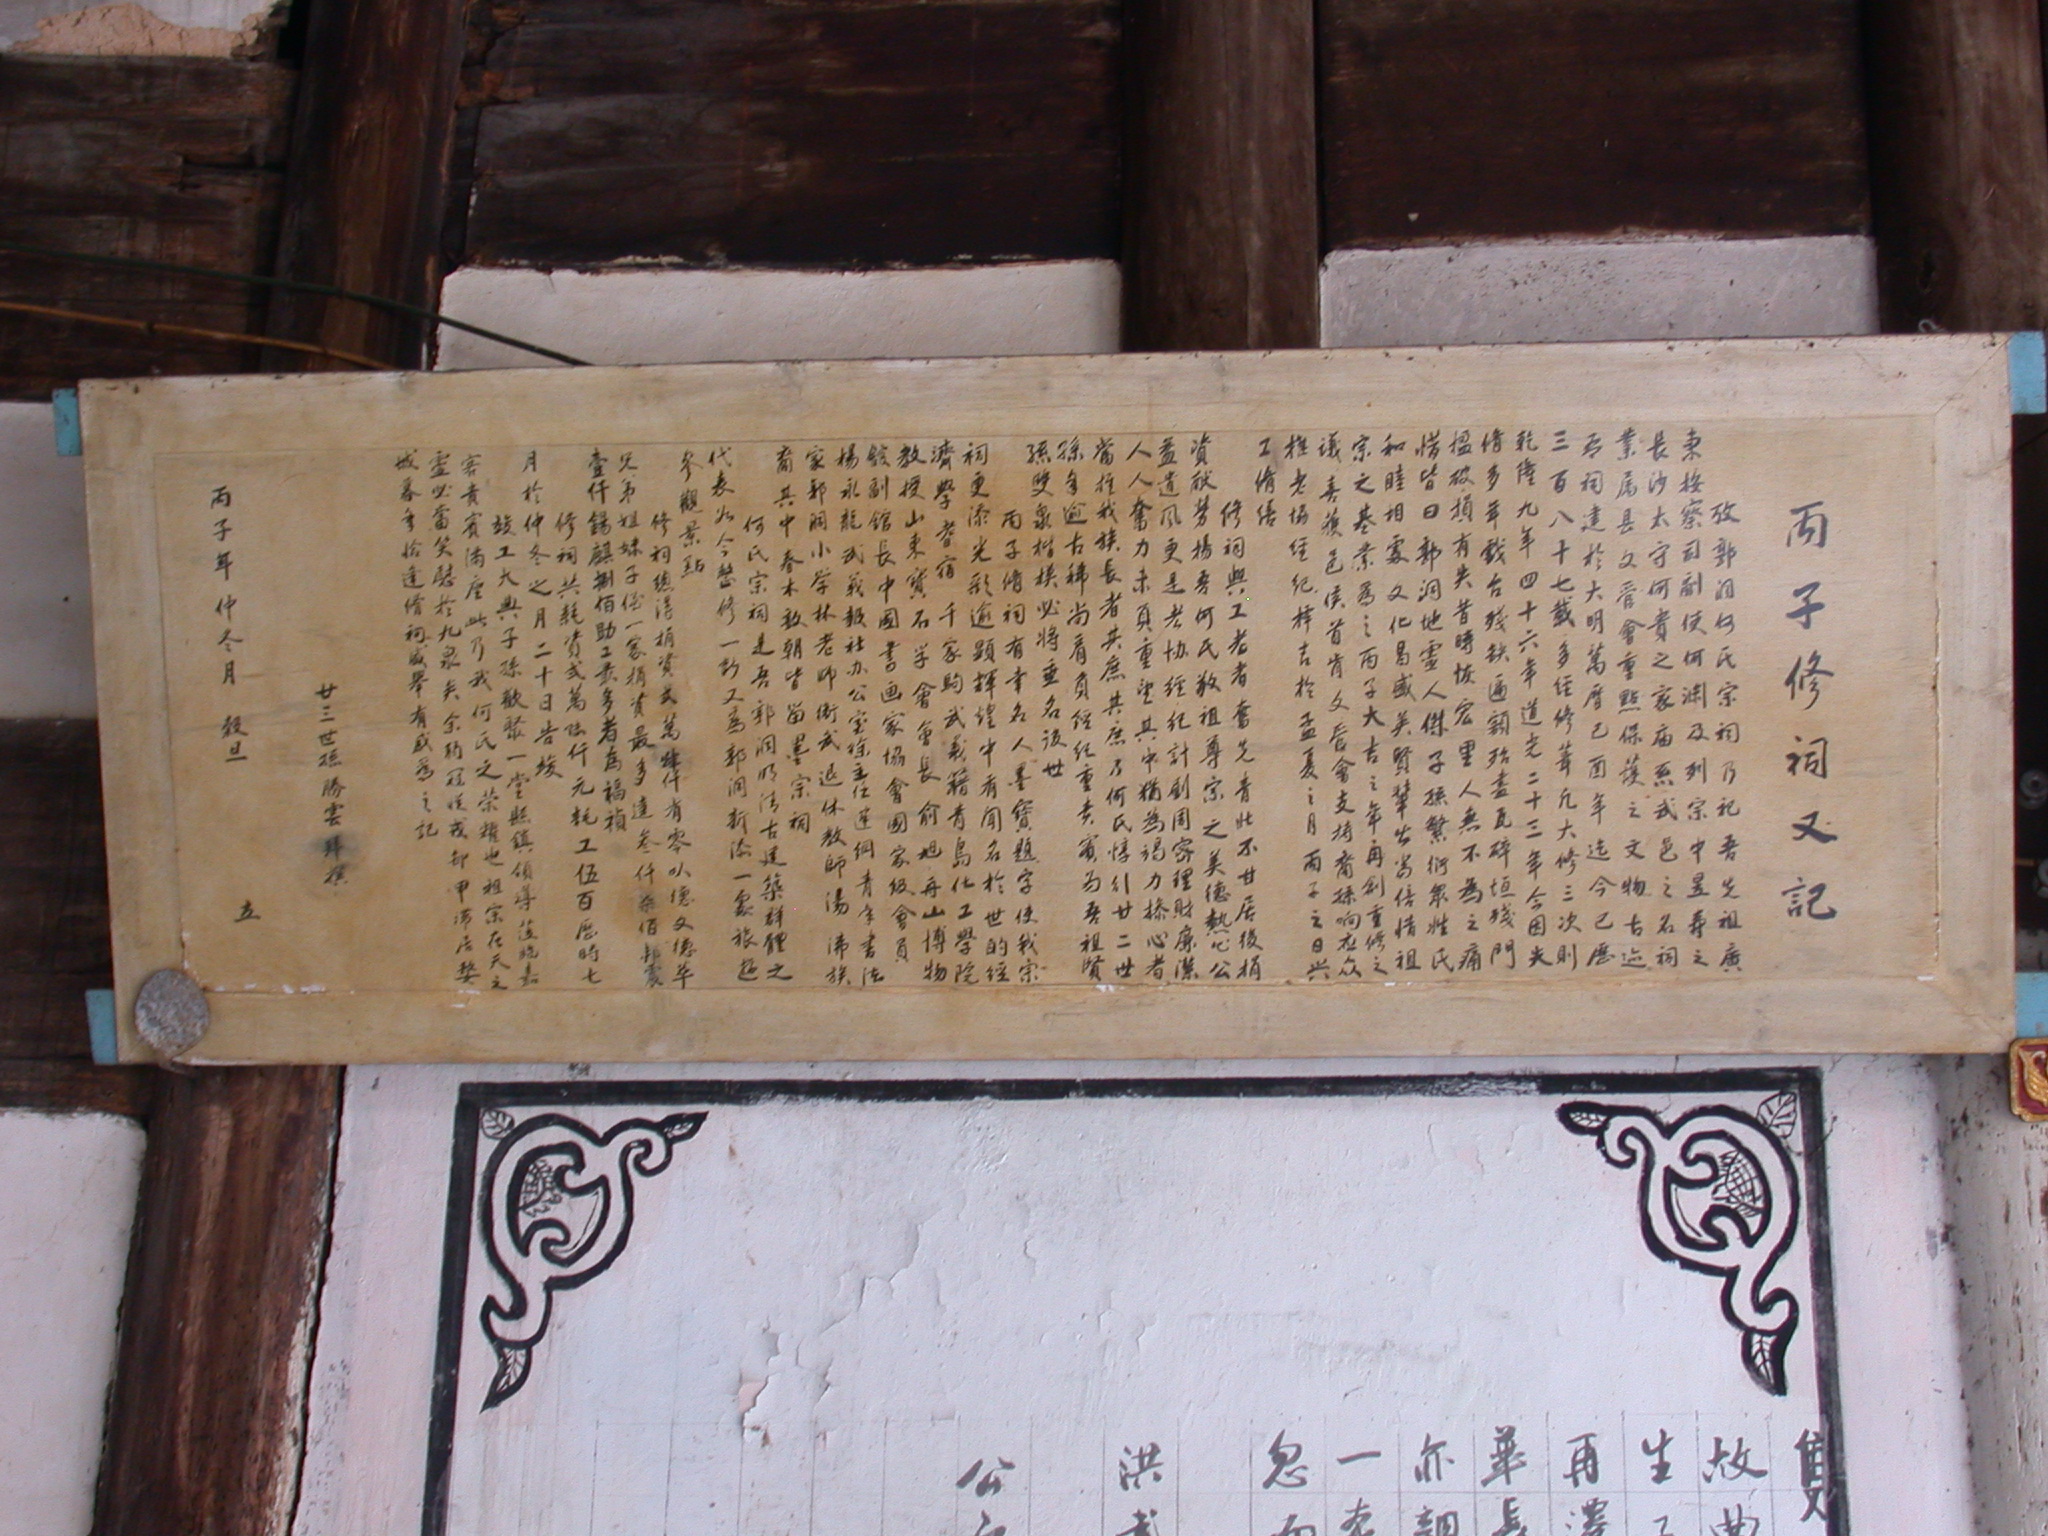 丙子修祠又記
攷郭洞何氏宗祠乃祀吾先祖廣
東按察司副使何渊及列宗中昱壽之
長沙太守何貴之家庙系武邑之名祠
業属县文管會重點保護之文物古迹
吾祠建於大明萬曆己酉年迄今已歷
三百八十七載多经修葺凡大修三次則
乾隆九年四十六年道光二十三年今因失
修多年戲台殘缺遍額殆盡瓦碎垣殘門
楹破損有失昔時恢宏里人無不為之痛
惜皆曰郭洞地靈人傑子孫繁衍眾姓氏
和睦相處文化昌盛美賢輩出尚倍惜祖
宗之基業為之丙子大吉之年再創重修之
議喜獲邑侯首肯文管會支持裔孫响应众
推老協经纪择吉於孟夏之月丙子之日兴
工脩缮
修祠與工者者奮先青壯不甘居後捐
資献劳揚吾何氏敬祖尊宗之美德熱心公
益遺风更是老协经纪計劃周密理財廉潔
人人奮力未負重望其中猶為竭力操心者
當推我族長者其庶其庶乃何氏惇引廿二世
孫年逾古稀尚肩負经纪重责實為吾祖賢
孫雙泉楷模必將垂名後世
丙子脩祠有幸名人墨寶題字使我宗
祠更添光彩逾顕輝煌中有聞名於世的经
濟學耆宿千家駒武義籍青島化工學院
教授山東寶石学會會長俞旭舟山博物
館副館長中國書画家協會國家级會員
楊永龍武義報社办公室徐主任蓮綱青年書法
家郭洞小学林老师衛武退休教師湯沸族
裔其中春木敦朝皆留墨宗祠
何氏宗祠是吾郭洞明清古建築群體之
代表为今整修一新又為郭洞新添一處旅逰
參觀景點
修祠總淂捐資弍萬肆仟有零以德文德华
兄弟姐妹子侄一家捐資最多達叁仟柒佰邦震
壹仟錫麒捌佰助工最多者為福禎
修祠共耗資弍萬陆仟元耗工伍百歷時七
月於仲冬之月二十日告竣
竣工大典子孫歡聚一堂縣鎮領導蒞临嘉
宾貴賓满座此乃我何氏之荣耀也祖宗在天之
靈必當笑慰於九泉矣余
城暮年恰逢脩祠盛舉有感為之記
廿三世孫勝雲拜撰
丙子年仲冬月 穀旦
立
雙
故
生
再澤
華長
亦調
一
忽
洪武
公